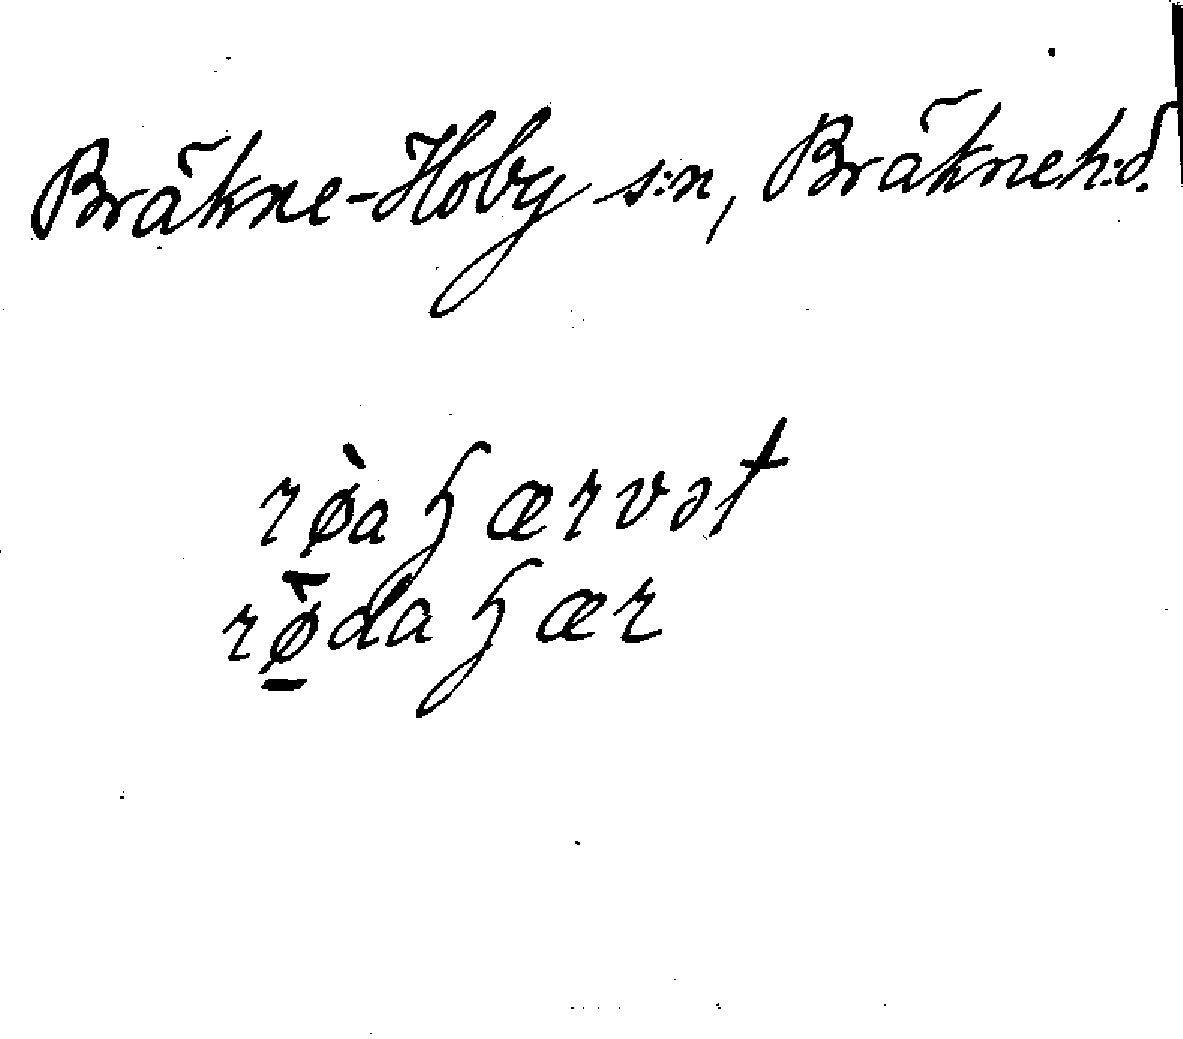 Bräkne-Hoby s:n, Bräkneh:d.
rø̀a hærvət
rø̀da hær